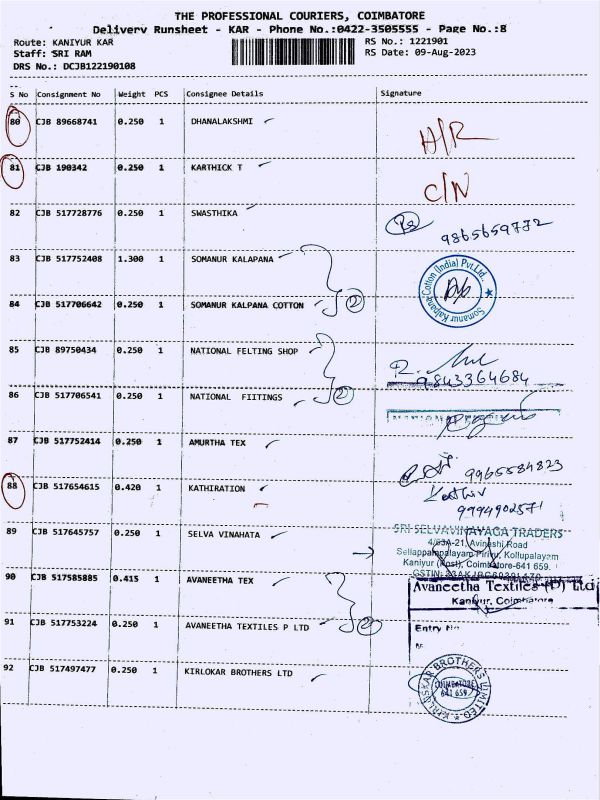 THE PROFESSIONAL COURIERS, COIMBATORE
Delivery Runsheet - KAR - Phone No.:0422-3505555 - Page No.:8
Route: KANIYUR KAR RS No.: 1221901
Staff: SRI RAM RS Date: 09-Aug-2023
DRS No.: DCJB122190108
S No Consignment No Weight PCS Consignee Details Signature
80 CJB 89668741 0.250 1 DHANALAKSHMI H/R
81 CJB 190342 0.250 1 KARTHICK T C/N
82 CJB 517728776 0.250 1 SWASTHIKA 9865659772
83 CJB 517752408 1.300 1 SOMANUR KALAPANA
Somanur Kalpana Cotton (India) Pvt.Ltd.
84 CJB 517706642 0.250 1 SOMANUR KALPANA COTTON 2
85 CJB 89750434 0.250 1 NATIONAL FELTING SHOP
9843364684
86 CJB 517706541 0.250 1 NATIONAL FIITINGS 2
87 CJB 517752414 0.250 1 AMURTHA TEX
9965584823
88 CJB 517654615 0.420 1 KATHIRATION
9994902571
89 CJB 517645757 0.250 1 SELVA VINAHATA
SRI SELVAVINAYAGA TRADERS
4/53A-21, Avinashi Road
Sellappampalayam Pirivu, Kollupalayam
Kaniyur (Post), Coimbatore-641 659.
90 CJB 517585885 0.415 1 AVANEETHA TEX
Avaneetha Textiles (P) Ltd
Kaniyur, Coimbatore
91 CJB 517753224 0.250 1 AVANEETHA TEXTILES P LTD 2
Entry No
92 CJB 517497477 0.250 1 KIRLOKAR BROTHERS LTD
KIRLOSKAR BROTHERS LIMITED
COIMBATORE
641 659